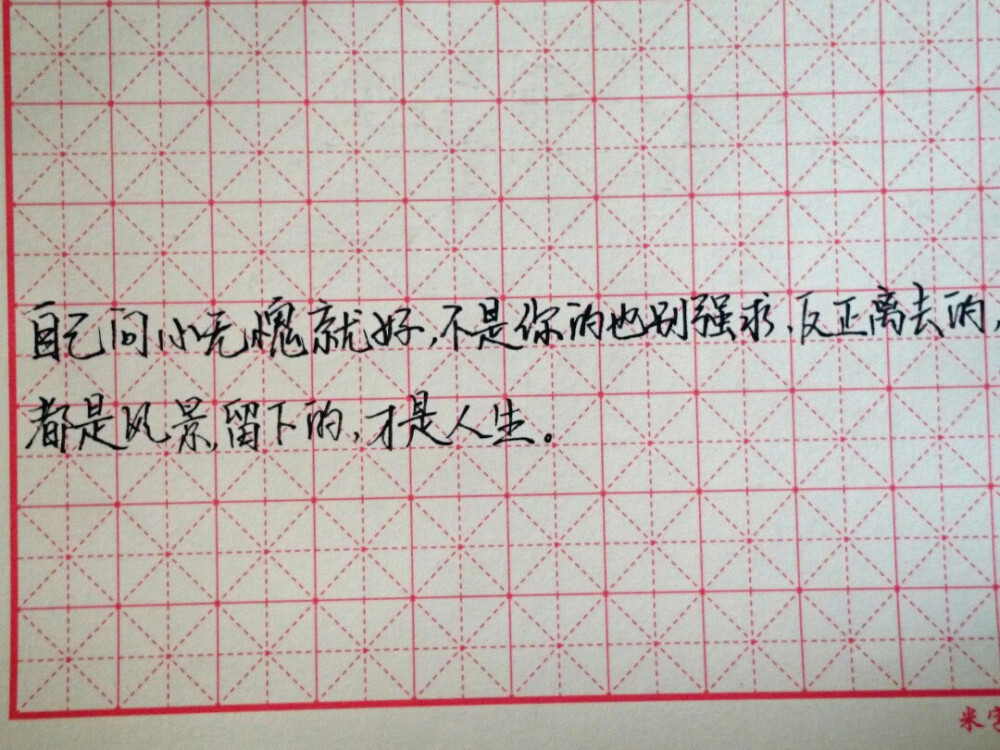 自己问心无愧就好,不是你的也别强求,反正离去的,
都是风景,留下的,才是人生。
米字